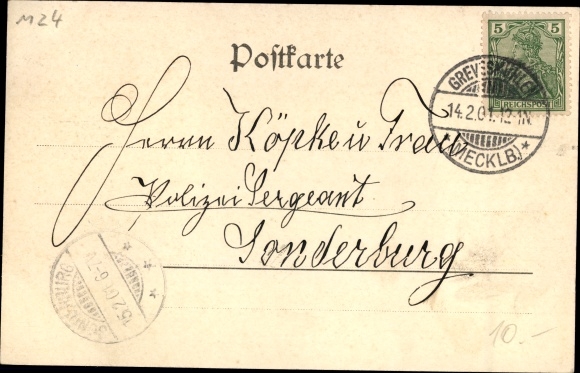 M24
Postkarte
5 5
REICHSPOST
GREVESMÜHLEN
14.2.01.12-1N.
(MECKLB)*
Herrn Köpke u Frau
Polizei Sergeant
Sonderburg
SONDERBURG
15.2.01.6-7V
* * *
10.-